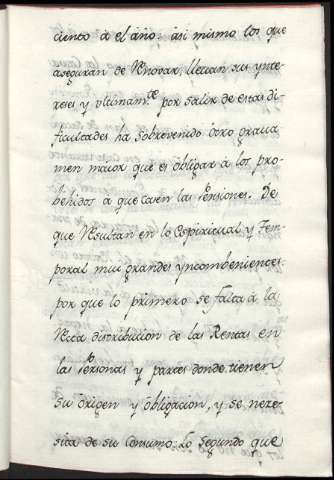 ciento à el año: asi mismo los que
aseguran de Renovar, llevan sus ynte-
reses y ultimam.te por salir de estas di-
ficultades ha sobrevenido otro grava
men maior que es obligar a los pro-
behidos a que casen las Pensiones. De
que Resultan en lo Espiritual y Tem-
poral mui grandes yncombenienzes:
por que lo primero se falta à la
Recta distribucion de las Rentas en
las Personas y partes donde tienen
su origen y obligacion, y se neze-
sita de su Consumo: Lo Segundo que